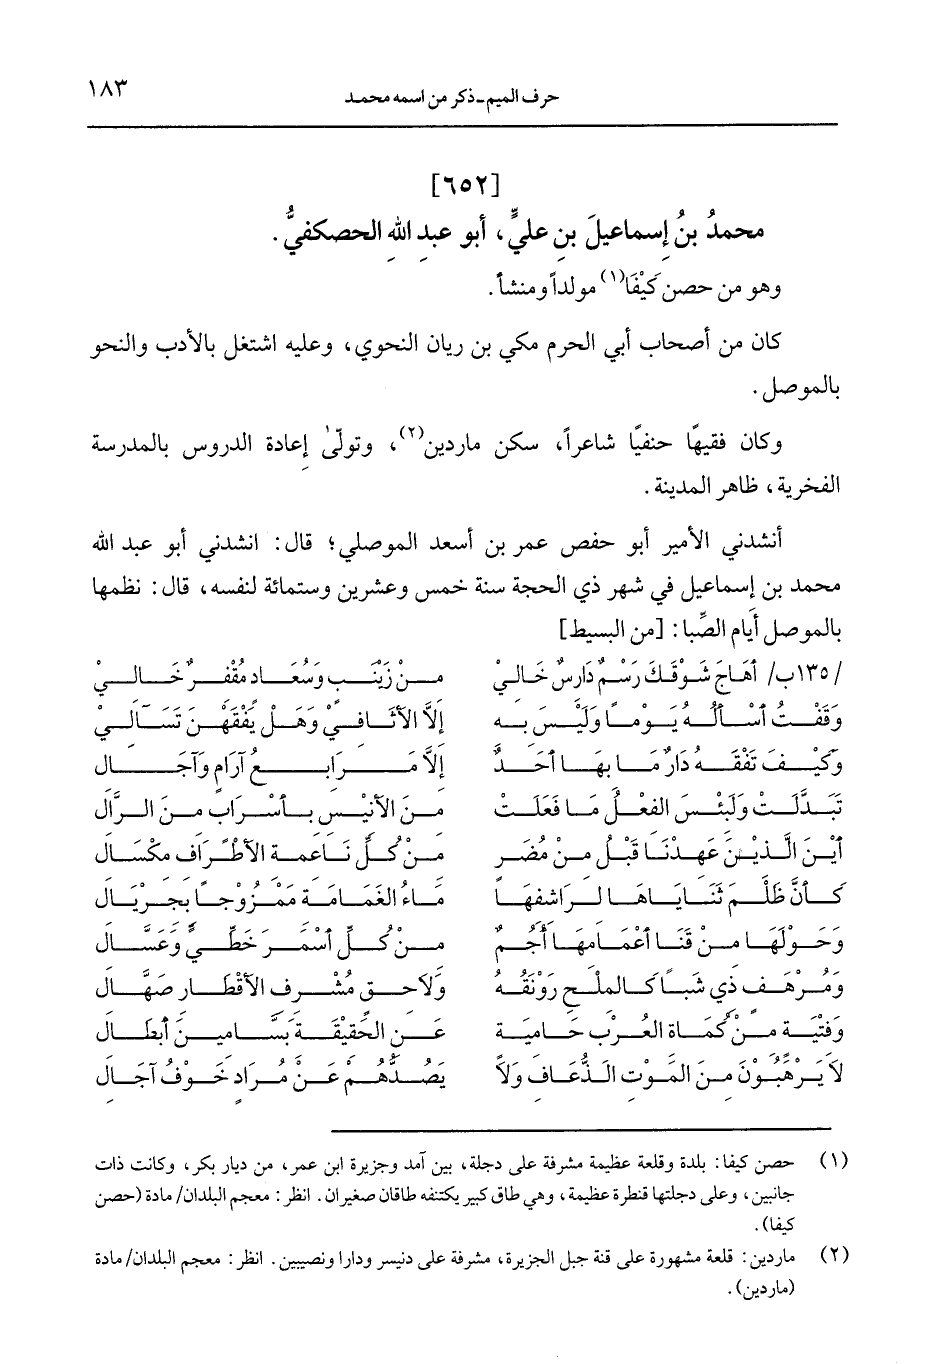 حرف الميم ـ ذكر من اسمه محمد ١٨٣
[٦٥٢]
محمدُ بنُ إسماعيلَ بنِ عليٍّ، أبو عبدِ اللهِ الحصكفيُّ.
وهو من حصن كَيْفَا(١) مولداً ومنشأ.
كان من أصحاب أبي الحرم مكي بن ريان النحوي، وعليه اشتغل بالأدب والنحو
بالموصل.
وكان فقيهًا حنفيًا شاعراً، سكن ماردين(٢)، وتولّىٰ إعادة الدروس بالمدرسة
الفخرية، ظاهر المدينة.
أنشدني الأمير أبو حفص عمر بن أسعد الموصلي؛ قال: انشدني أبو عبد الله
محمد بن إسماعيل في شهر ذي الحجة سنة خمس وعشرين وستمائة لنفسه، قال: نظمها
بالموصل أيام الصِّبا: [من البسيط]
/١٣٥ب/ أَهَاجَ شَوْقَكَ رَسْمٌ دَارِسٌ خَالِيْ مِنْ زَيْنَبٍ وَسُعَادٍ مُقْفِرٌ خَالِيْ
وَقَفْتُ أَسْأَلُهُ يَوْمًا وَلَيْسَ بِهِ إِلَّا الأَثَافِيْ وَهَلْ يُفْقِهْنَ تَسْآلِيْ
وَكَيْفَ تَفْقَهُ دَارٌ مَا بِهَا أَحَدٌ إِلَّا مَرَابِعُ آرَامٍ وَآجَالِ
تَبَدَّلَتْ وَلَبِئْسَ الفِعْلُ مَا فَعَلَتْ مِنَ الأَنِيْسِ بِأَسْرَابٍ مِنَ الرَّالِ
أَيْنَ الَّذِيْنَ عَهِدْنَا قَبْلُ مِنْ مُضَرٍ مِنْ كُلِّ نَاعِمَةِ الأَطْرَافِ مِكْسَالِ
كَأَنَّ ظَلْمَ ثَنَايَاهَا لِرَاشِفِهَا مَاءُ الغَمَامَةِ مَمْزُوْجاً بِجِرْيَالِ
وَحَوْلَهَا مِنْ قَنَا أَعْمَامِهَا أُجُمٌ مِنْ كُلِّ أَسْمَرَ خَطِّيٍّ وَعَسَّالِ
وَمُرْهَفٍ ذي شَباً كَالملْحِ رَوْنَقُهُ وَلَاحِقٍ مُشْرِفِ الأَقْطَارِ صَهَّالِ
وَفِتْيَةٍ مِنْ كُمَاةِ العُرْبِ حَامِيَةٍ عَنِ الحَقِيْقَةِ بَسَّامِيْنَ أَبْطَالِ
لَا يَرْهَبُوْنَ مِنَ المَوْتِ الذُّعَافِ وَلَا يَصُدُّهُمْ عَنْ مُرَادٍ خَوْفُ آجَالِ
(١) حصن كيفا: بلدة وقلعة عظيمة مشرفة على دجلة، بين آمد وجزيرة ابن عمر، من ديار بكر، وكانت ذات
جانبين، وعلى دجلتها قنطرة عظيمة، وهي طاق كبير يكتنفه طاقان صغيران. انظر: معجم البلدان/ مادة (حصن
كيفا).
(٢) ماردين: قلعة مشهورة على قنة جبل الجزيرة، مشرفة على دنيسر ودارا ونصيبين. انظر: معجم البلدان/ مادة
(ماردين).